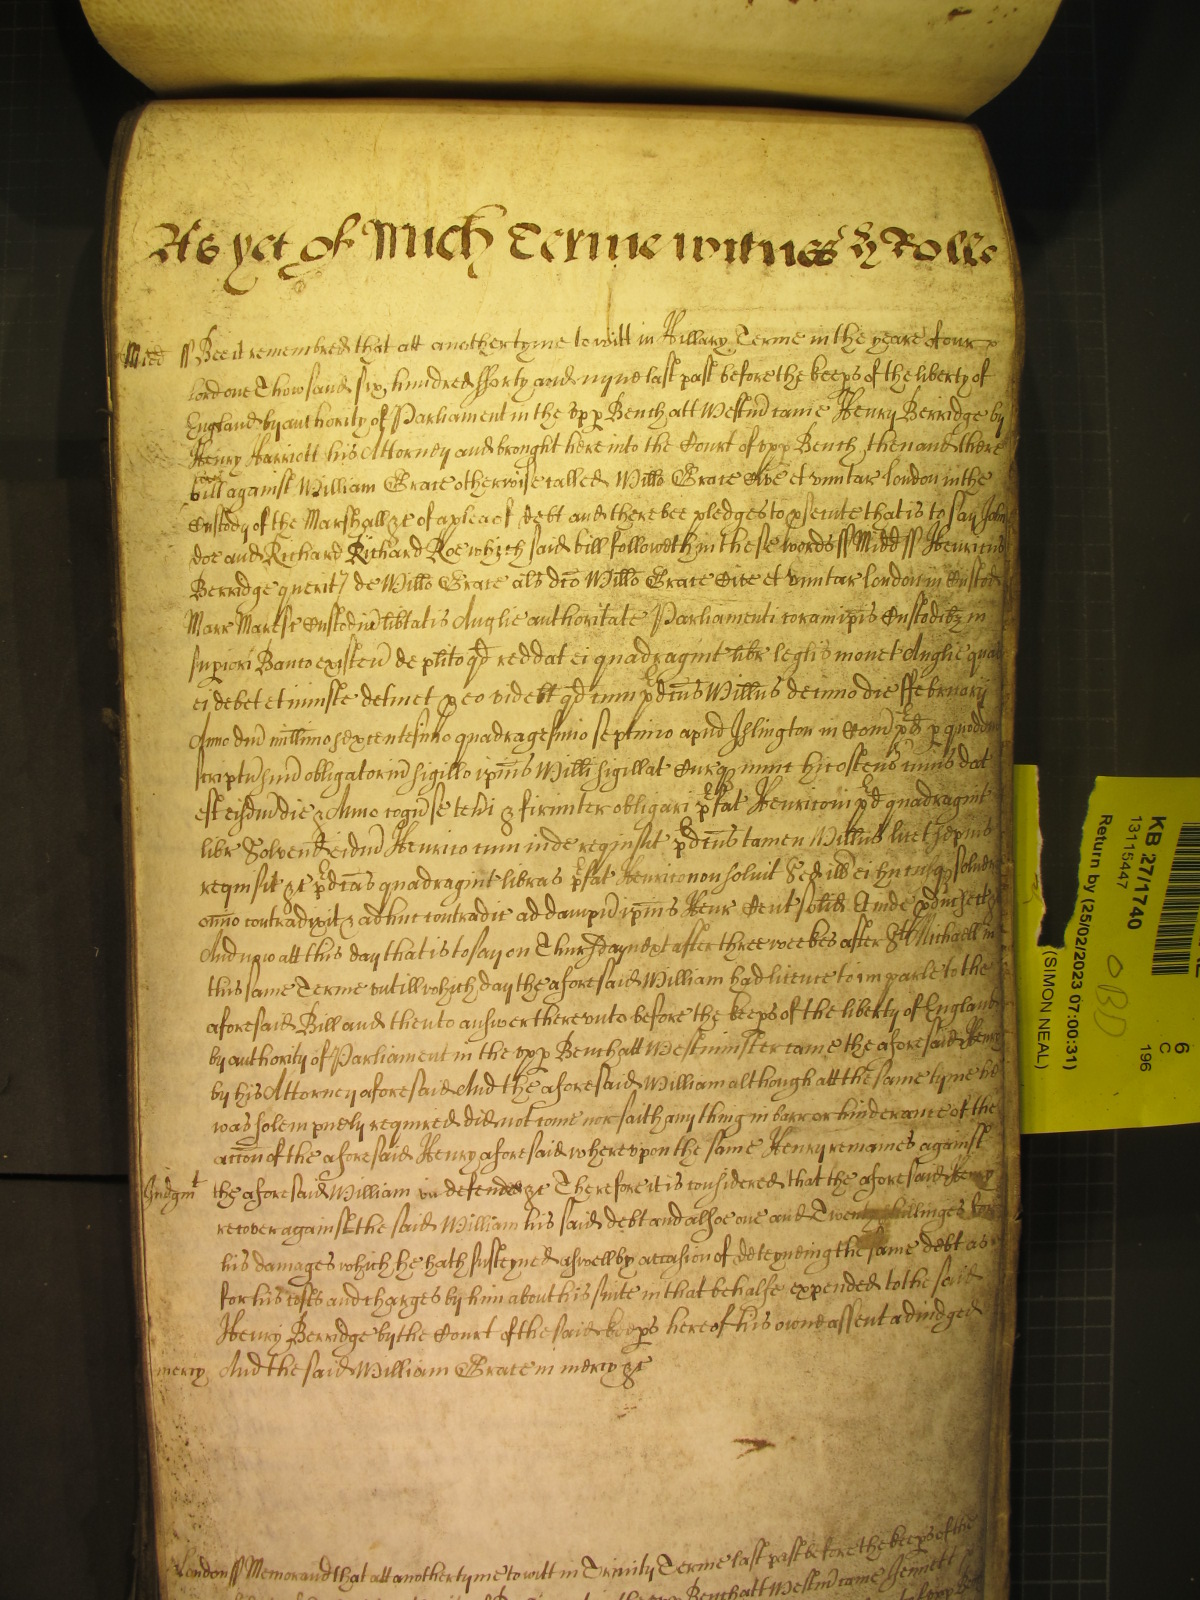 As yet of Mich Terme witnes Hy Rolle
Midd ss Bee it remembred that att another tyme to witt in Hillary Terme in the yeare of our
lord one Thowsand six hundred fforty and nyne last past before the keeps of the liberty of
England by authority of Parliament in the vpp Bench att Westm̄ came Henry Berridge by
Henry Harriott his Attorney and brought here into the Court of vpp Bench then and there
bill against William Grace otherwise called Willo Grace Cive et vinitar london in the
Custody of the Marshall &c of a plea of debt and there bee pledges to psecute that is to say John
doe and Richard Richard Roe which said bill followeth in these words ss Midd ss Henricus
Berridge querit de Willo Grace als dco Willo Grace Cive et vinitar london in Custod
Marr Maresc Custodiu libtatis Anglie authoritate Parliamenti coram ipis Custodibz in
supiori Banco existen de plito qd reddat ei quadragint libr leglis monet Anglie quas
ei debet et iniuste detinet p eo videlt qd cum pdcus Willus decimo die ffebruarij
Anno dni millimo sexcentesimo quadragesimo septimo apud Islington in Com pd p quoddam
scriptu suu obligatoriu sigillo ipius Willi sigillat Curqz nunc hic ostens cuius dat
est eisdm die & Anno cogn se teneri & firmiter obligari pfat Henrico in pd quadragint
libr Solvend eidm Henrico cum inde requisit pdcus tamen Willus licet sepius
requisit &c pdcas quadragint libras pfat Henrico non soluit Sed ill ei hucusqz soluere
omnio contradixit & adhuc contradic ad dampn ipius Henr Cent solid Et inde pduc sect &c
And now att this day that is to say on Thursday next after three weekes after St Michaell in
this same Terme vntill which day the aforesaid William had licence to imparle to the
aforesaid Bill and then to answer therevnto before the keeps of the liberty of England
by authority of Parliament in the vpp Bench att Westminster came the aforesaid Henry
by his Attorney aforesaid And the aforesaid William although att the same tyme he
was solempnely required did not come nor saith any thing in barr or hinderance of the
accon of the aforesaid Henry aforesaid wherevpon the same Henry remaines against
Judgmt the aforesaid William vndefended &c Therefore it is considered that the aforesaid Henry
recover against the said William his said debt and alsoe one and Twenty shillinges for
his damages which he hath susteyned aswell by occasion of deteyneing the same debt as
for his costs and charges by him about his suite in that behalfe expended to the said
Henry Berridge by the Court of the said keeps here of his owne assent adiudged
mercy And the said William Grace in mercy &c
London ss Memorand that att another tyme to witt in Trinity Terme last past before the keeps of the
vpp Bench att Westm̄ came Jennett
KB 27/1740
13115447
Return by (25/02/2023 07:00:31)
(SIMON NEAL)
6
C
196